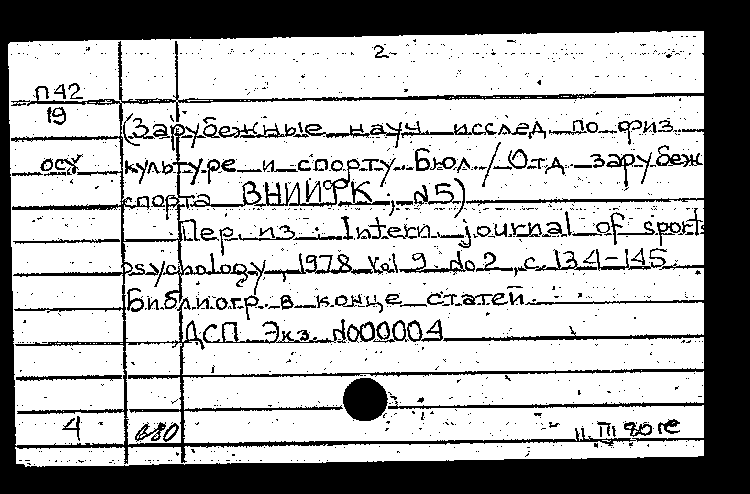 2
П42
19
(Зарубежные науч. исслед по физ
осу культуре и спорту. Бюл / Отд зарубеж
спорта ВНИИФК ; №5)
Пер. из : Intern. journal of sport
psychology, 1978 vol 9. №2, с. 134-145.
Библиогр. в конце статей.
ДСП Экз. №000004
4 680 11. III 80 ге